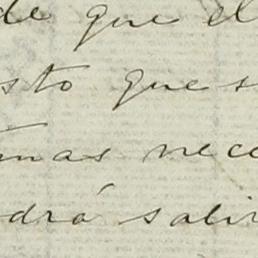 de que el
sto que s
mas nece
drá salir